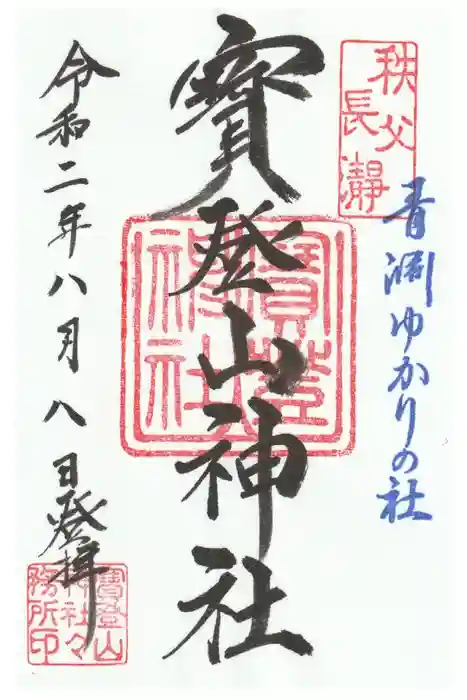 秩父
長瀞
青淵ゆかりの社
寳登山神社
令和二年八月八日登拝
寳登山
神社々
務所印